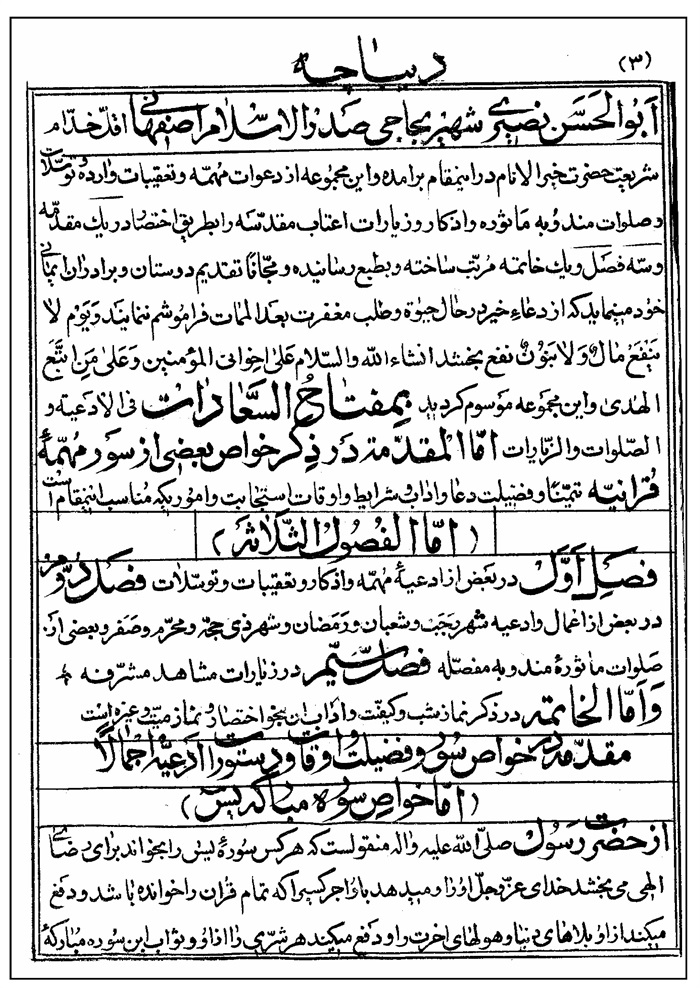 (۳) دیباچه
ابوالحسن نصیری شهیر بحاجی صدرالاسلام اصفهانی اقل خدام
شریعت حضرت خیر الانام در اینمقام برآمده و این مجموعه از دعوات مهمه و تعقیبات وارده توسلات
و صلوات مندوبه مأثوره و اذکار و زیارات اعتاب مقدسه را بطریق اختصار در یک مقدمه
و سه فصل و یک خاتمه مرتب ساخته و بطبع رسانیده و مجّاناً تقدیم دوستان و برادران ایمانی
خود مینماید که از دعاء خیر در حال حیوة و طلب مغفرت بعد الممات فراموشم ننمایند و یوم لا
ینفع مالٌ و لا بنونٌ نفع بخشد انشاء الله والسلام علی اخوانی المؤمنین و علی من اتبع
الهدی و این مجموعه موسوم گردید بمفتاح السعادات فی الادعیة و
الصلوات والزیارات اما المقدمة در ذکر خواص بعضی از سور مهمّهٔ
قرانیه تیمناً و فضیلت دعا و اداب و شرایط و اوقات استجابت و اموریکه مناسب اینمقام است
(اما الفصول الثلاثه)
فصل اول در بعض از ادعیهٔ مهمه و اذکار و تعقیبات و توسلات فصل دوم
در بعض از اعمال و ادعیه شهر رجب و شعبان و رمضان و شهر ذی حجه و محرم و صفر و بعضی از
صلوات مأثورهٔ مندوبه مفصله فصل سیم در زیارات مشاهد مشرفه
و اما الخاتمة در ذکر نماز شب و کیفیت و اداب ان بنحو اختصار و نماز میت و غیره است
مقدمه در خواص سور و فضیلت اوقات و دستور ادعیه اجمالاً
(اما خواص سوره مبارکه یس)
از حضرت رسول صلی الله علیه واله منقولست که هرکس سورهٔ یس را بخواند برای رضای
الهی می بخشد خدای عزوجل او را و میدهد باو اجر کسیرا که تمام قران را خوانده باشد و دفع
میکند از او بلاهای دنیا و هولهای اخرت را و دفع میکند هر شری را از او و ثواب این سوره مبارکهٔ